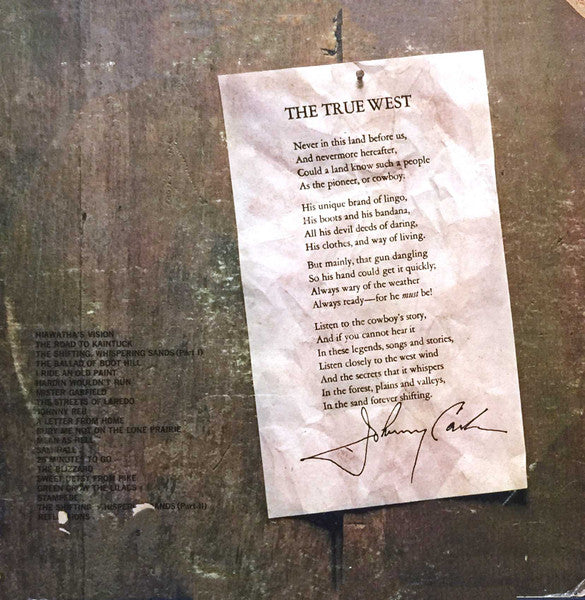 THE TRUE WEST
Never in this land before us,
And nevermore hereafter,
Could a land know such a people
As the pioneer, or cowboy:
His unique brand of lingo,
His boots and his bandana,
All his devil deeds of daring,
His clothes, and way of living.
But mainly, that gun dangling
So his hand could get it quickly;
Always wary of the weather
Always ready—for he must be!
Listen to the cowboy's story,
And if you cannot hear it
In these legends, songs and stories,
Listen closely to the west wind
And the secrets that it whispers
In the forest, plains and valleys,
In the sand forever shifting.
Johnny Cash
HIAWATHA'S VISION
THE ROAD TO KAINTUCK
THE SHIFTING, WHISPERING SANDS (Part I)
THE BALLAD OF BOOT HILL
I RIDE AN OLD PAINT
HARDIN WOULDN'T RUN
MISTER GARFIELD
THE STREETS OF LAREDO
JOHNNY REB
A LETTER FROM HOME
BURY ME NOT ON THE LONE PRAIRIE
MEAN AS HELL
SAM HALL
25 MINUTES TO GO
THE BLIZZARD
SWEET BETSY FROM PIKE
GREEN GROW THE LILACS
STAMPEDE
THE SHIFTING (Part II)